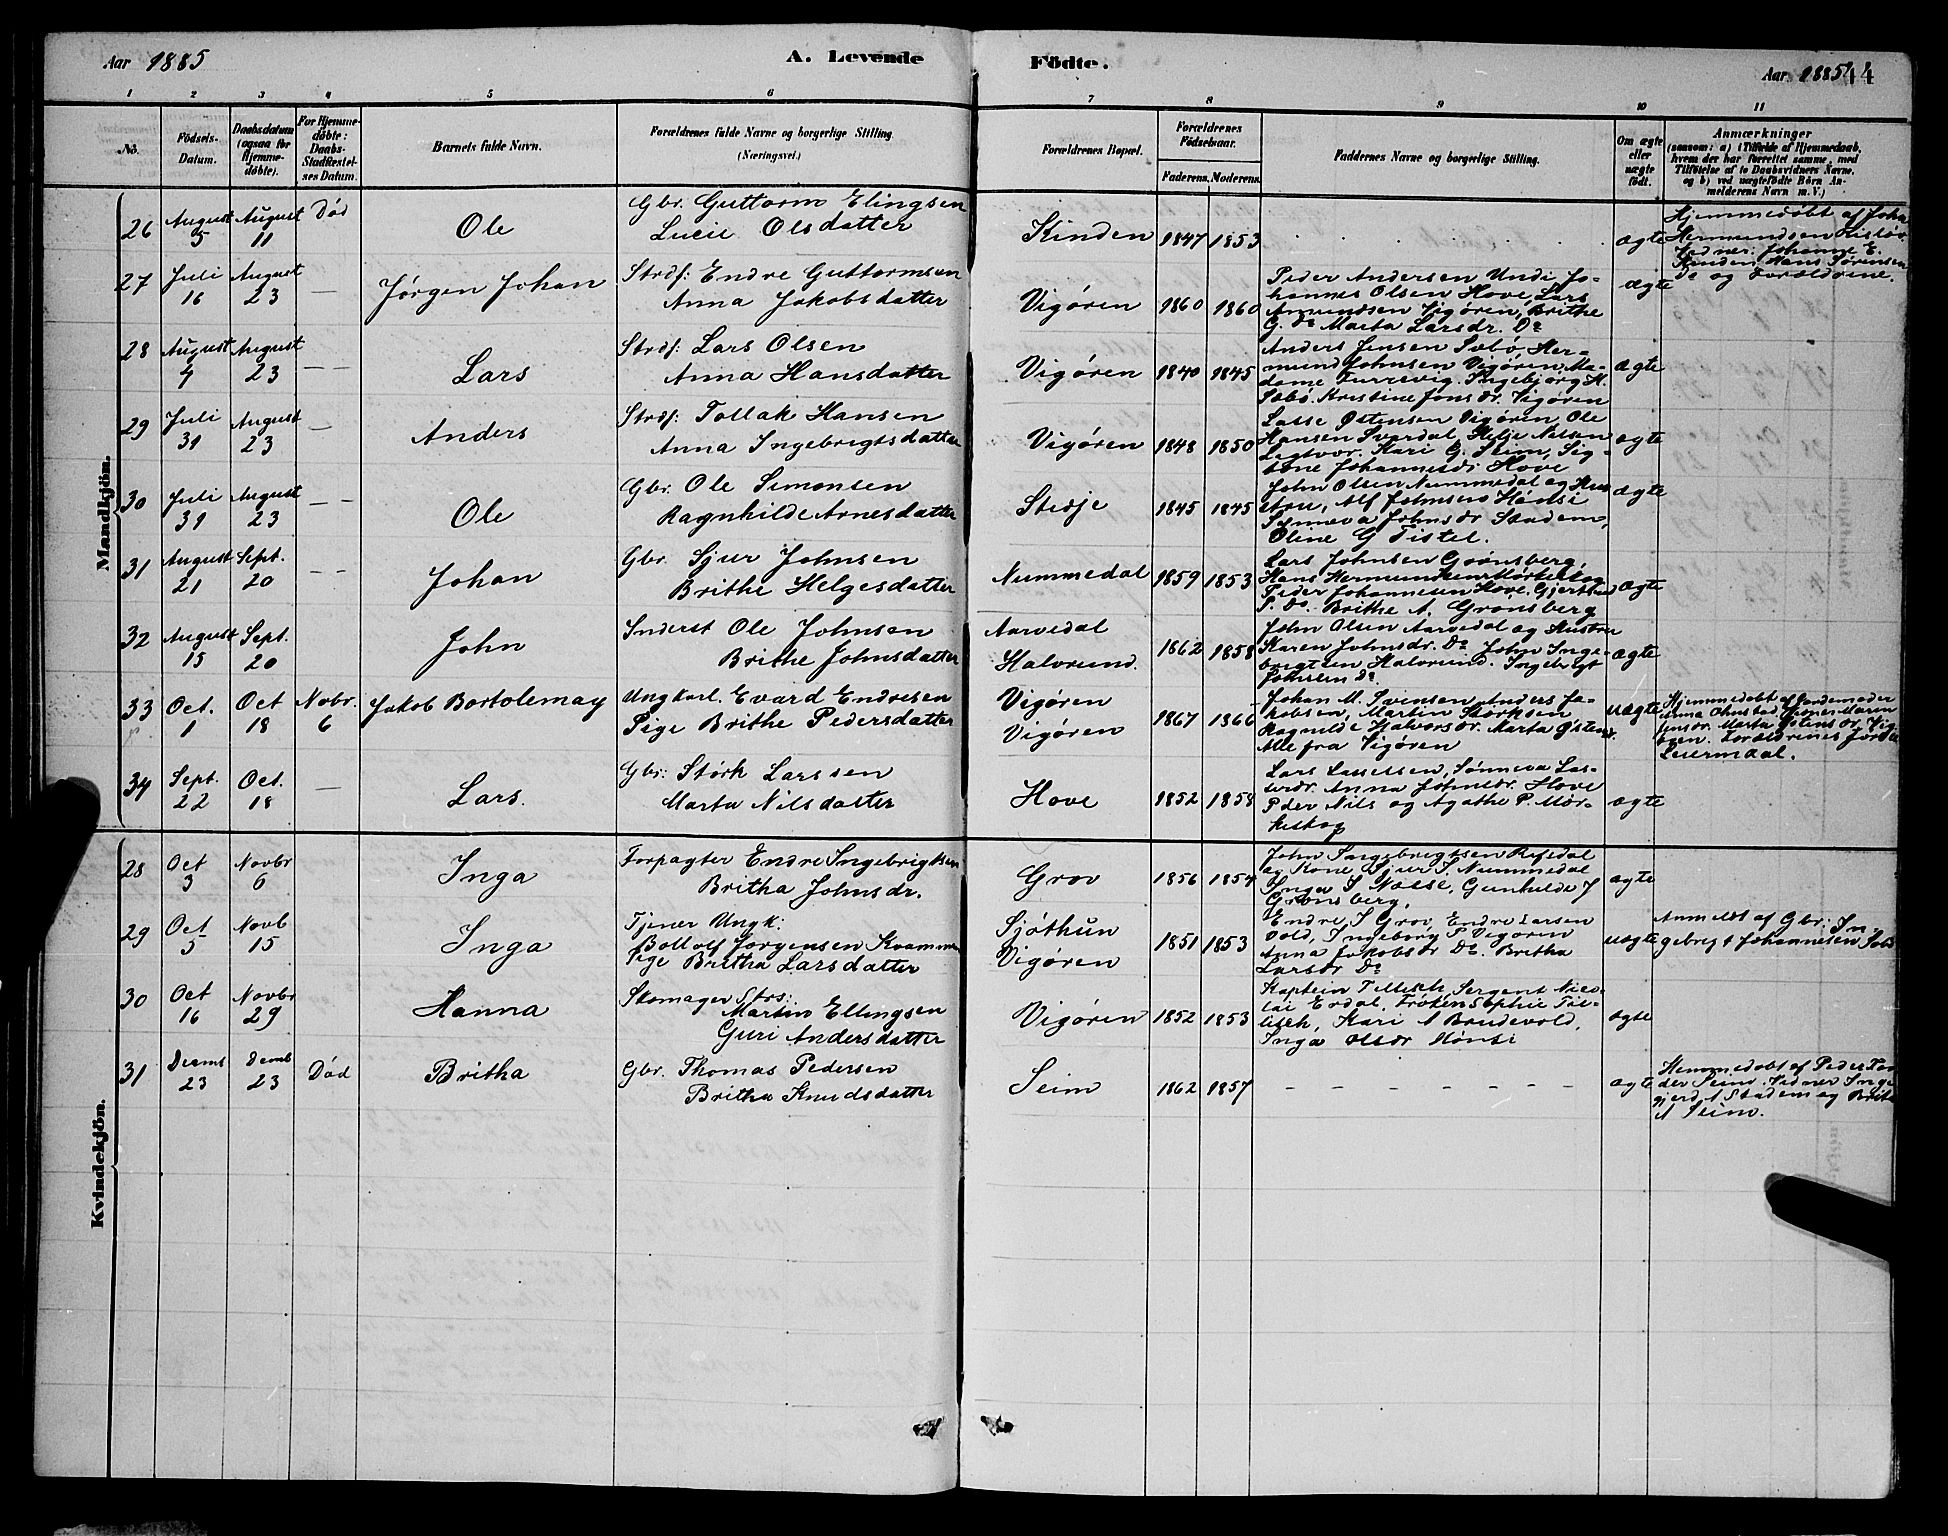 Aar 1885
A. Levende Födte.
Aar 1885
44
1 2 3 4 5 6 7 8 9 10 11
No.
Födsels-
Datum.
Daabsdatum
(ogsaa for
Hjemme-
döbte).
For Hjemme-
döbte:
Daabs-
Stadfæstel-
ses Datum.
Barnets fulde Navn.
Forældrenes fulde Navne og borgerlige Stilling.
(Næringsvei.)
Forældrenes Bopæl.
Forældrenes
Födselsaar.
Faderens. Moderens.
Faddernes Navne og borgerlige Stilling.
Om ægte
eller
uægte
födt.
Anmærkninger
(saasom: a) i Tilfælde af Hjemmedaab,
hvem der har forrettet samme, med
Tilföielse af to Daabsvidners Navne,
og b) ved uægtefödte Börn An-
melderens Navn m. V.)
Mandkjön.
26 August 5 August 11 Död
Ole
Gbr. Guttorm Elingsen
Lucie Olsdatter
Kinden 1847 1853
ægte
Hjemmedöbt af Joha
Hermundsen
Vidner: Johanne E.
Kinden, Hans Sørensen
Do og Forældrene.
27 Juli 16 August 23 —
Jørgen Johan
Strdf: Endre Guttormsen
Anna Jakobsdatter
Vigøren 1860 1860
Peder Andersen Undi Jo-
hannes Olsen Hove, Lars
Amundsen Vigøren, Brithe
G. Do Marta Larsdr. Do
ægte
28 August 4 August 23 — —
Lars
Strdf: Lars Olsen
Anna Hansdatter
Vigøren 1840 1845
Anders Jensen Sæbö Her-
mund Johnsen Vigøren Ma-
dame Turvesvig. Ingebjørg H.
Sæbö. Kristine Jonsdr. Vigøren
ægte
29 Juli 31 August 23 —
Anders
Strdf: Tollak Hansen
Anna Ingebrigtsdatter
Vigøren 1848 1850
Lasse Østensen Vigøren Ole
Hansen Svardal, Helje Nilsen
Ligtvor. Kari G. Seim, Sig-
Johannesdr Hove
ægte
30 Juli 31 August 23 — —
Ole
Gbr. Ole Simonsen
Ragnhilde Arnesdatter
Stedje 1845 1845
John Olsen Nummedal og Hus-
tru, Alf Johnsen Hönsi
Synneva Johnsdr Stadem,
Oline G Tistel.
ægte
31 August 21 Sept. 20 — —
Johan
Gbr. Sjur Johnsen
Brithe Helgesdatter
Nummedal 1859 1853
Lars Johnsen Grønsberg,
Hans Hermundsen Mørkeskog
Peder Johannesen Hove. Gjerthrud
P. Do. Brithe A. Grønsberg
ægte
32 August 15 Sept. 20
John
Inderst Ole Johnsen
Brithe Johnsdatter
Aarvedal
Halvrund. 1862 1858
John Olsen Aarvedal og Hustru
Karen Johnsdr. Do John Inge-
brigtsen Halvrund. Ingebrigt
Johnsen Do
ægte
33 Oct. 1 Oct 18 Novbr. 6
Jakob Bortolemay
Ungkarl. Evard Endresen
Pige Brithe Pedersdatter
Vigøren
Vigøren 1867 1866
Johan M. Svensen Anders Ja-
kobsen, Martin Størksen
Ragnilde Halvorsdr. Marta Østensdr.
Alle fra Vigøren
uægte
Hjemmedøbt af Jordemoder
Anna Ohnstad. Vidner: Maren
Jensdr. Marta Østensdr. Vig-
øren. Forældrenes første
Leiermaal.
34 Sept. 22 Oct. 18 —
Lars.
Gbr: Størk Larssen
Marta Nilsdatter
Hove 1852 1858
Lars Lassesen, Sønneva Las-
sesdr. Anna Johnsdr. Hove
Peder Nils og Agathe P. Mør-
keskog
ægte
Kvindekjön.
28 Oct 3 Novbr 6
Inga
Forpagter Endre Ingebrigtsen
Britha Johnsdr.
Grov 1856 1854
John Ingebregtsen Refsdal
og Kone, Sjur S. Nummedal
Inga S Næsse, Gunhilde J
Grønsberg,
ægte
29 Oct 5 Novb 15
Inga
Tjener Ungk:
Bottolf Jørgensen Kvammen
Pige Britha Larsdatter
Sjøthun
Vigøren 1851 1853
Endre I Grov, Endre Larsen
Vold, Ingeborg P Vigøren
Anna Jakobsdr Do. Britha
Larsdr Do
uægte
Anmeldt af Gbr: In-
gebrigt Johannesen
30 Oct 16 Novbr 29
Hanna
Skomager Strs:
Martin Ellingsen
Guri Andersdatter
Vigøren 1852 1853
Kaptein Tillisch Sergent Nico-
lai Erdal, Frøken Sophie Til-
lisch, Kari A Brudevold,
Inga Olsdr Hönsi
ægte
31 Decemb 23 Demb 23 Död
Britha
Gbr. Thomas Pedersen
Britha Knudsdatter
Seim 1862 1857
— — — — — — —
ægte
Hemmedøbt af Peder
der Seim. Vidner Inge
gjerd A Stadem og Britha
A Seim.